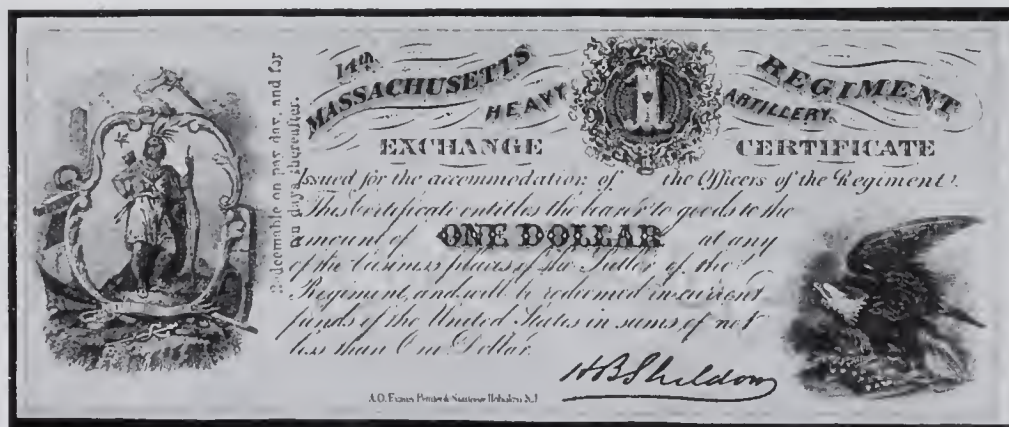 Redeemable on pay day, and for
ten days thereafter.
14th
MASSACHUSETTS REGIMENT
HEAVY ARTILLERY
1
EXCHANGE CERTIFICATE
Issued for the accommodation of the Officers of the Regiment.
This Certificate entitles the bearer to goods to the
amount of ONE DOLLAR at any
of the business places of the Sutler of the
Regiment, and will be redeemed in current
funds of the United States in sums of not
less than One Dollar.
HB Sheldon
A.O. Evans Printer & Hoboken N.J.